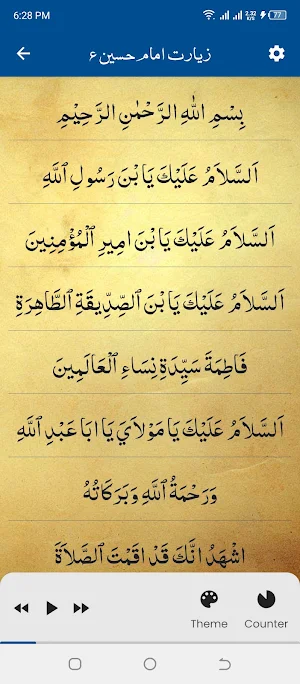 6:28 PM
2.32 K/s 77
زيارت امام حسين ع
بِسْمِ اللهِ الرَّحْمٰنِ الرَّحِيْمِ
اَلسَّلَامُ عَلَيْكَ يَا بْنَ رَسُولِ ٱللَّهِ
اَلسَّلَامُ عَلَيْكَ يَا بْنَ امِيرِ ٱلْمُؤْمِنِينَ
اَلسَّلَامُ عَلَيْكَ يَا بْنَ ٱلصِّدِّيقَةِ ٱلطَّاهِرَةِ
فَاطِمَةَ سَيِّدَةِ نِسَاءِ ٱلْعَالَمِينَ
اَلسَّلَامُ عَلَيْكَ يَا مَوْلَايَ يَا ابَا عَبْدِ ٱللَّهِ
وَرَحْمَةُ ٱللَّهِ وَبَرَكَاتُهُ
اشْهَدُ انَّكَ قَدْ اقَمْتَ ٱلصَّلَاةَ
Theme Counter